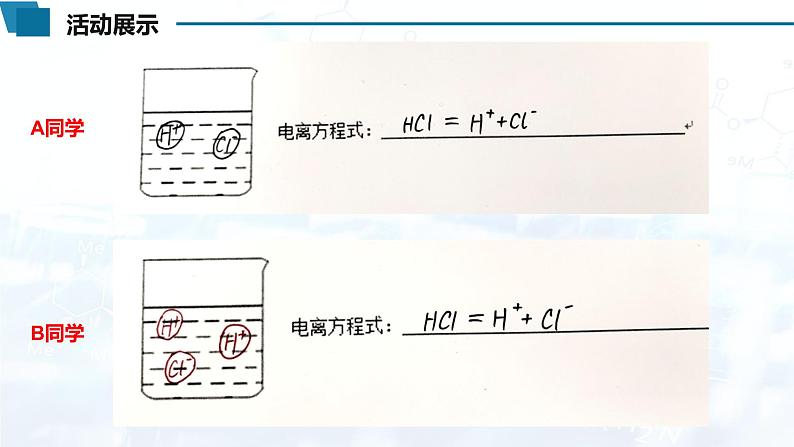 活动展示
A同学
H⁺
Cl⁻
电离方程式: HCl = H⁺+Cl⁻
B同学
H⁺
H⁺
Cl⁻
电离方程式: HCl = H⁺+ Cl⁻